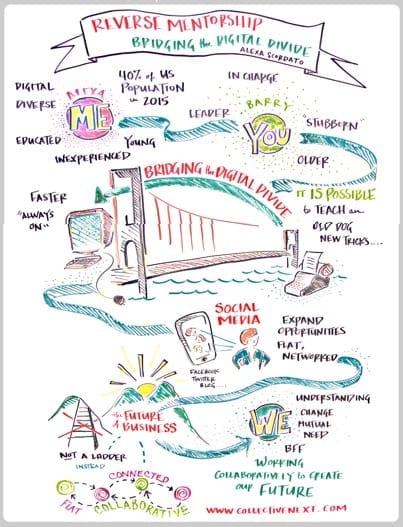 REVERSE MENTORSHIP
BRIDGING the DIGITAL DIVIDE
ALEXA SCORDATO
DIGITAL
DIVERSE
EDUCATED
INEXPERIENCED
YOUNG
ALEXA
ME
40% of US
POPULATION
in 2015
LEADER
IN CHARGE
BARRY
YOU
"STUBBORN"
OLDER
BRIDGING the DIGITAL DIVIDE
FASTER
"ALWAYS
ON"
IT IS POSSIBLE
to TEACH an
OLD DOG
NEW TRICKS....
SOCIAL
MEDIA
FACEBOOK
TWITTER
BLOG
EXPAND
OPPORTUNITIES
FLAT,
NETWORKED
the FUTURE
of BUSINESS
NOT A LADDER
INSTEAD
CONNECTED
FLAT
COLLABORATIVE
WE
UNDERSTANDING
CHANGE
MUTUAL
NEED
BFF
WORKING
COLLABORATIVELY to CREATE
our FUTURE
WWW.COLLECTIVENEXT.COM